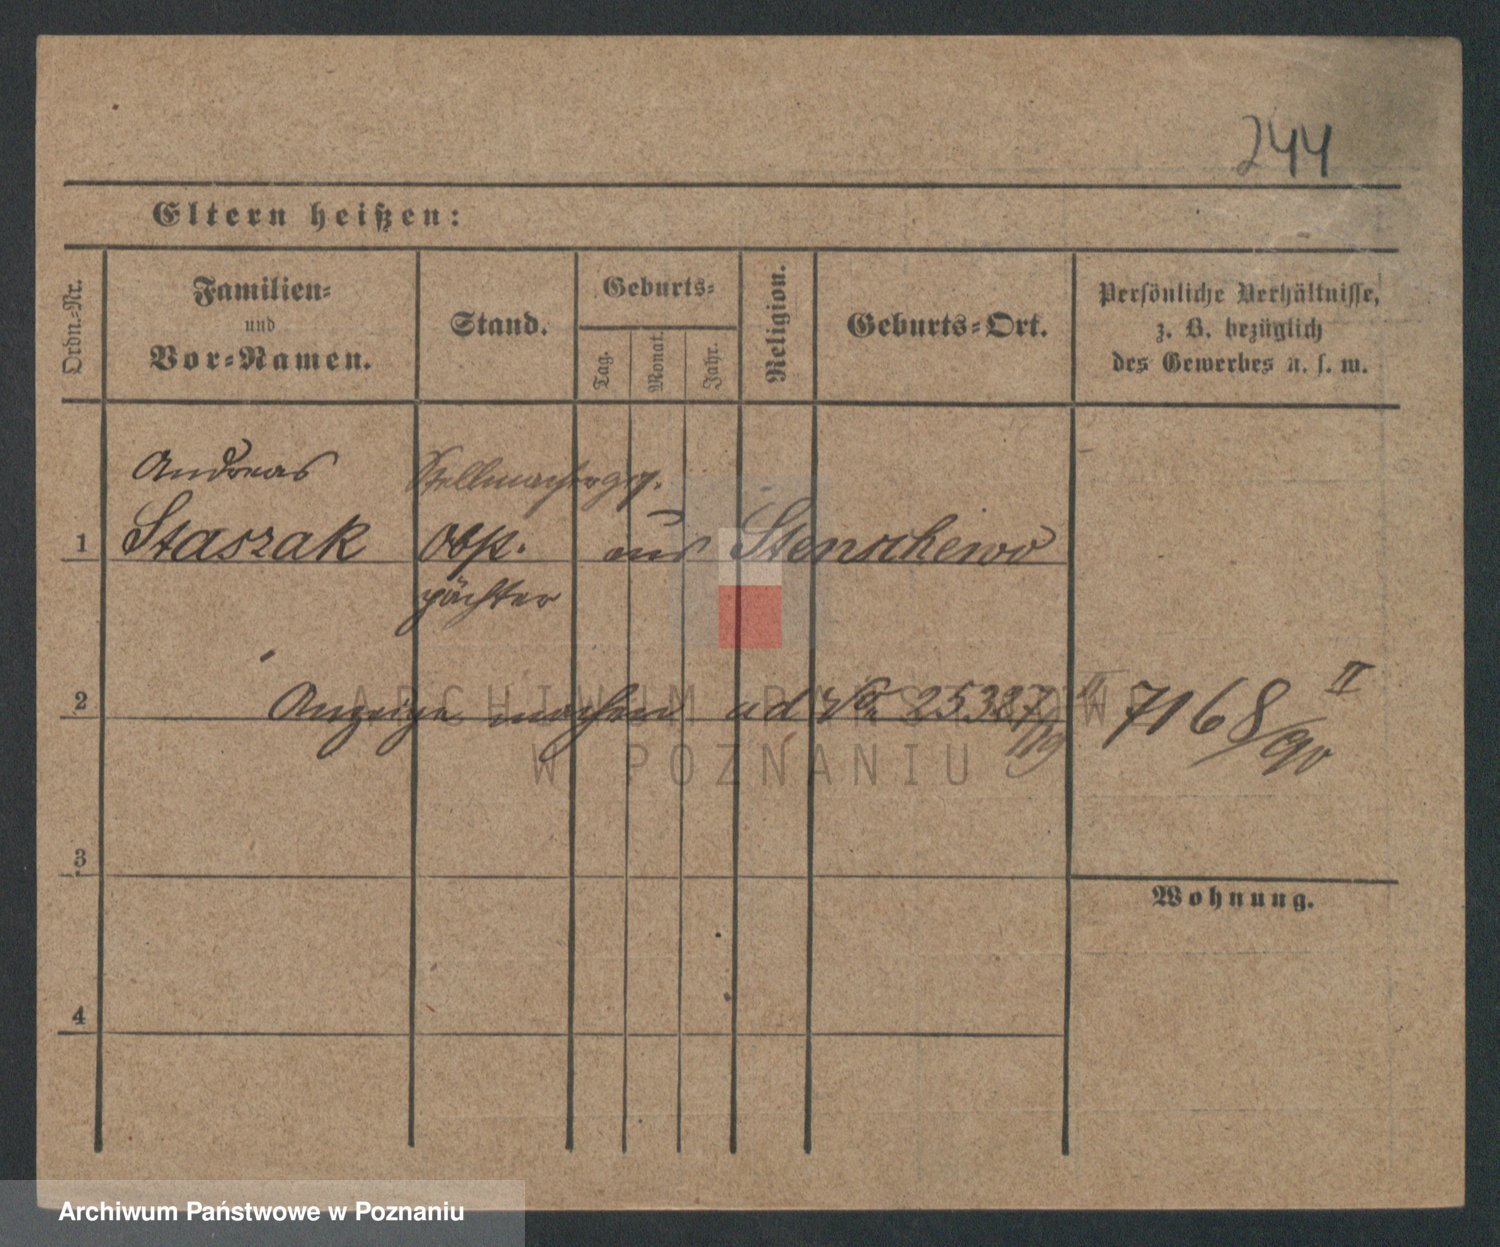 244
Eltern heißen:
Ordn.-Nr.
Familien-
und
Vor-Namen.
Stand.
Geburts-
Tag.
Monat.
Jahr.
Religion.
Geburts-Ort.
Persönliche Verhältnisse,
z. B. bezüglich
des Gewerbes u. s. w.
Andreas
1 Staszak Obst. aus Stenschewo
pächter
2 Anzeige machen ad No 25327 II 7168/90 II
3
Wohnung.
4
ARCHIWUM PAŃSTWOWE
W POZNANIU
Archiwum Państwowe w Poznaniu